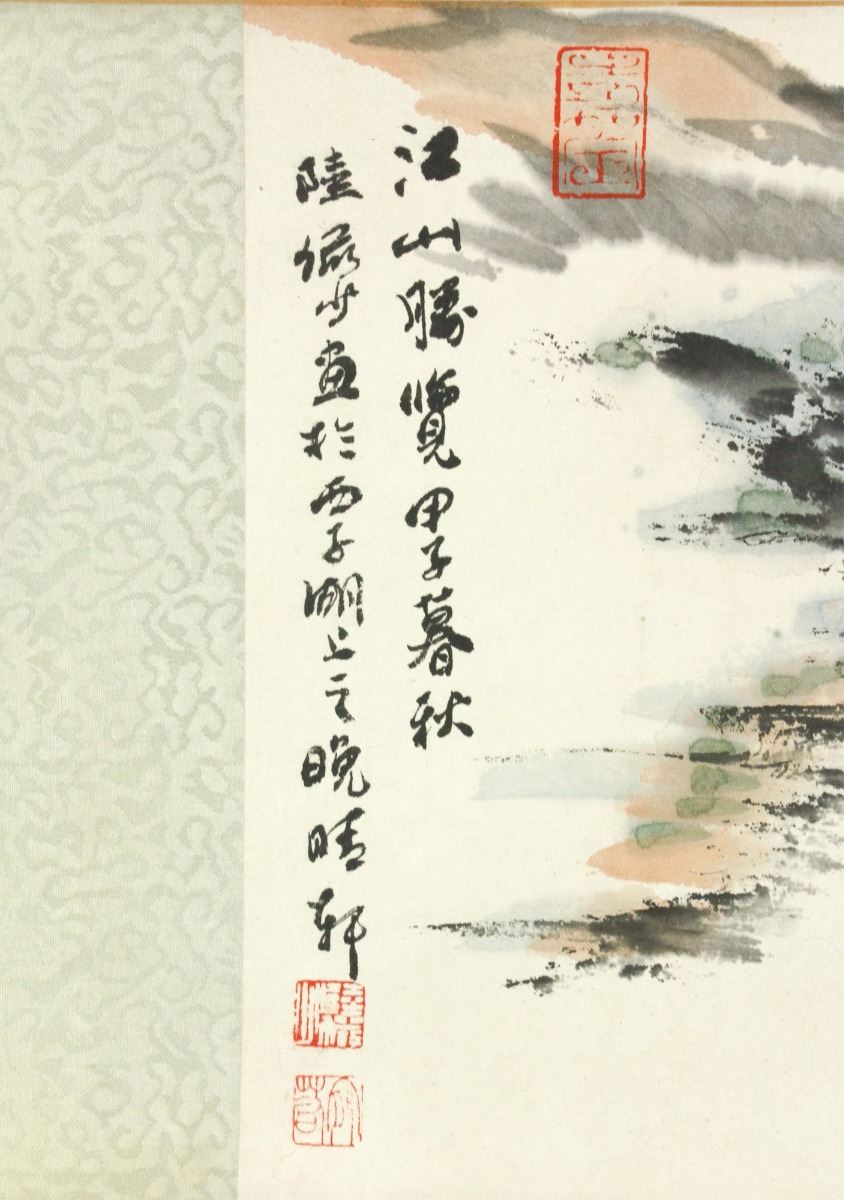 江山勝覽甲子暮秋
陸儼少畫於西子湖上之晚晴軒